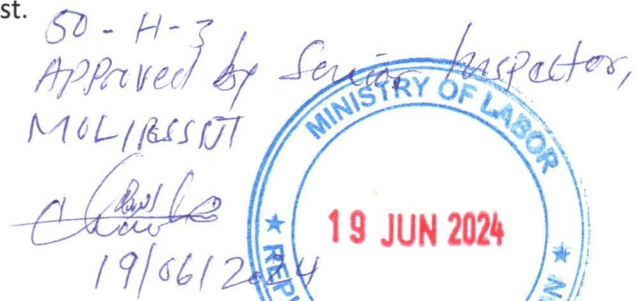 st.
50-H-3
Approved by Senior Inspector,
19/06/2024
MINISTRY OF LABOR
19 JUN 2024